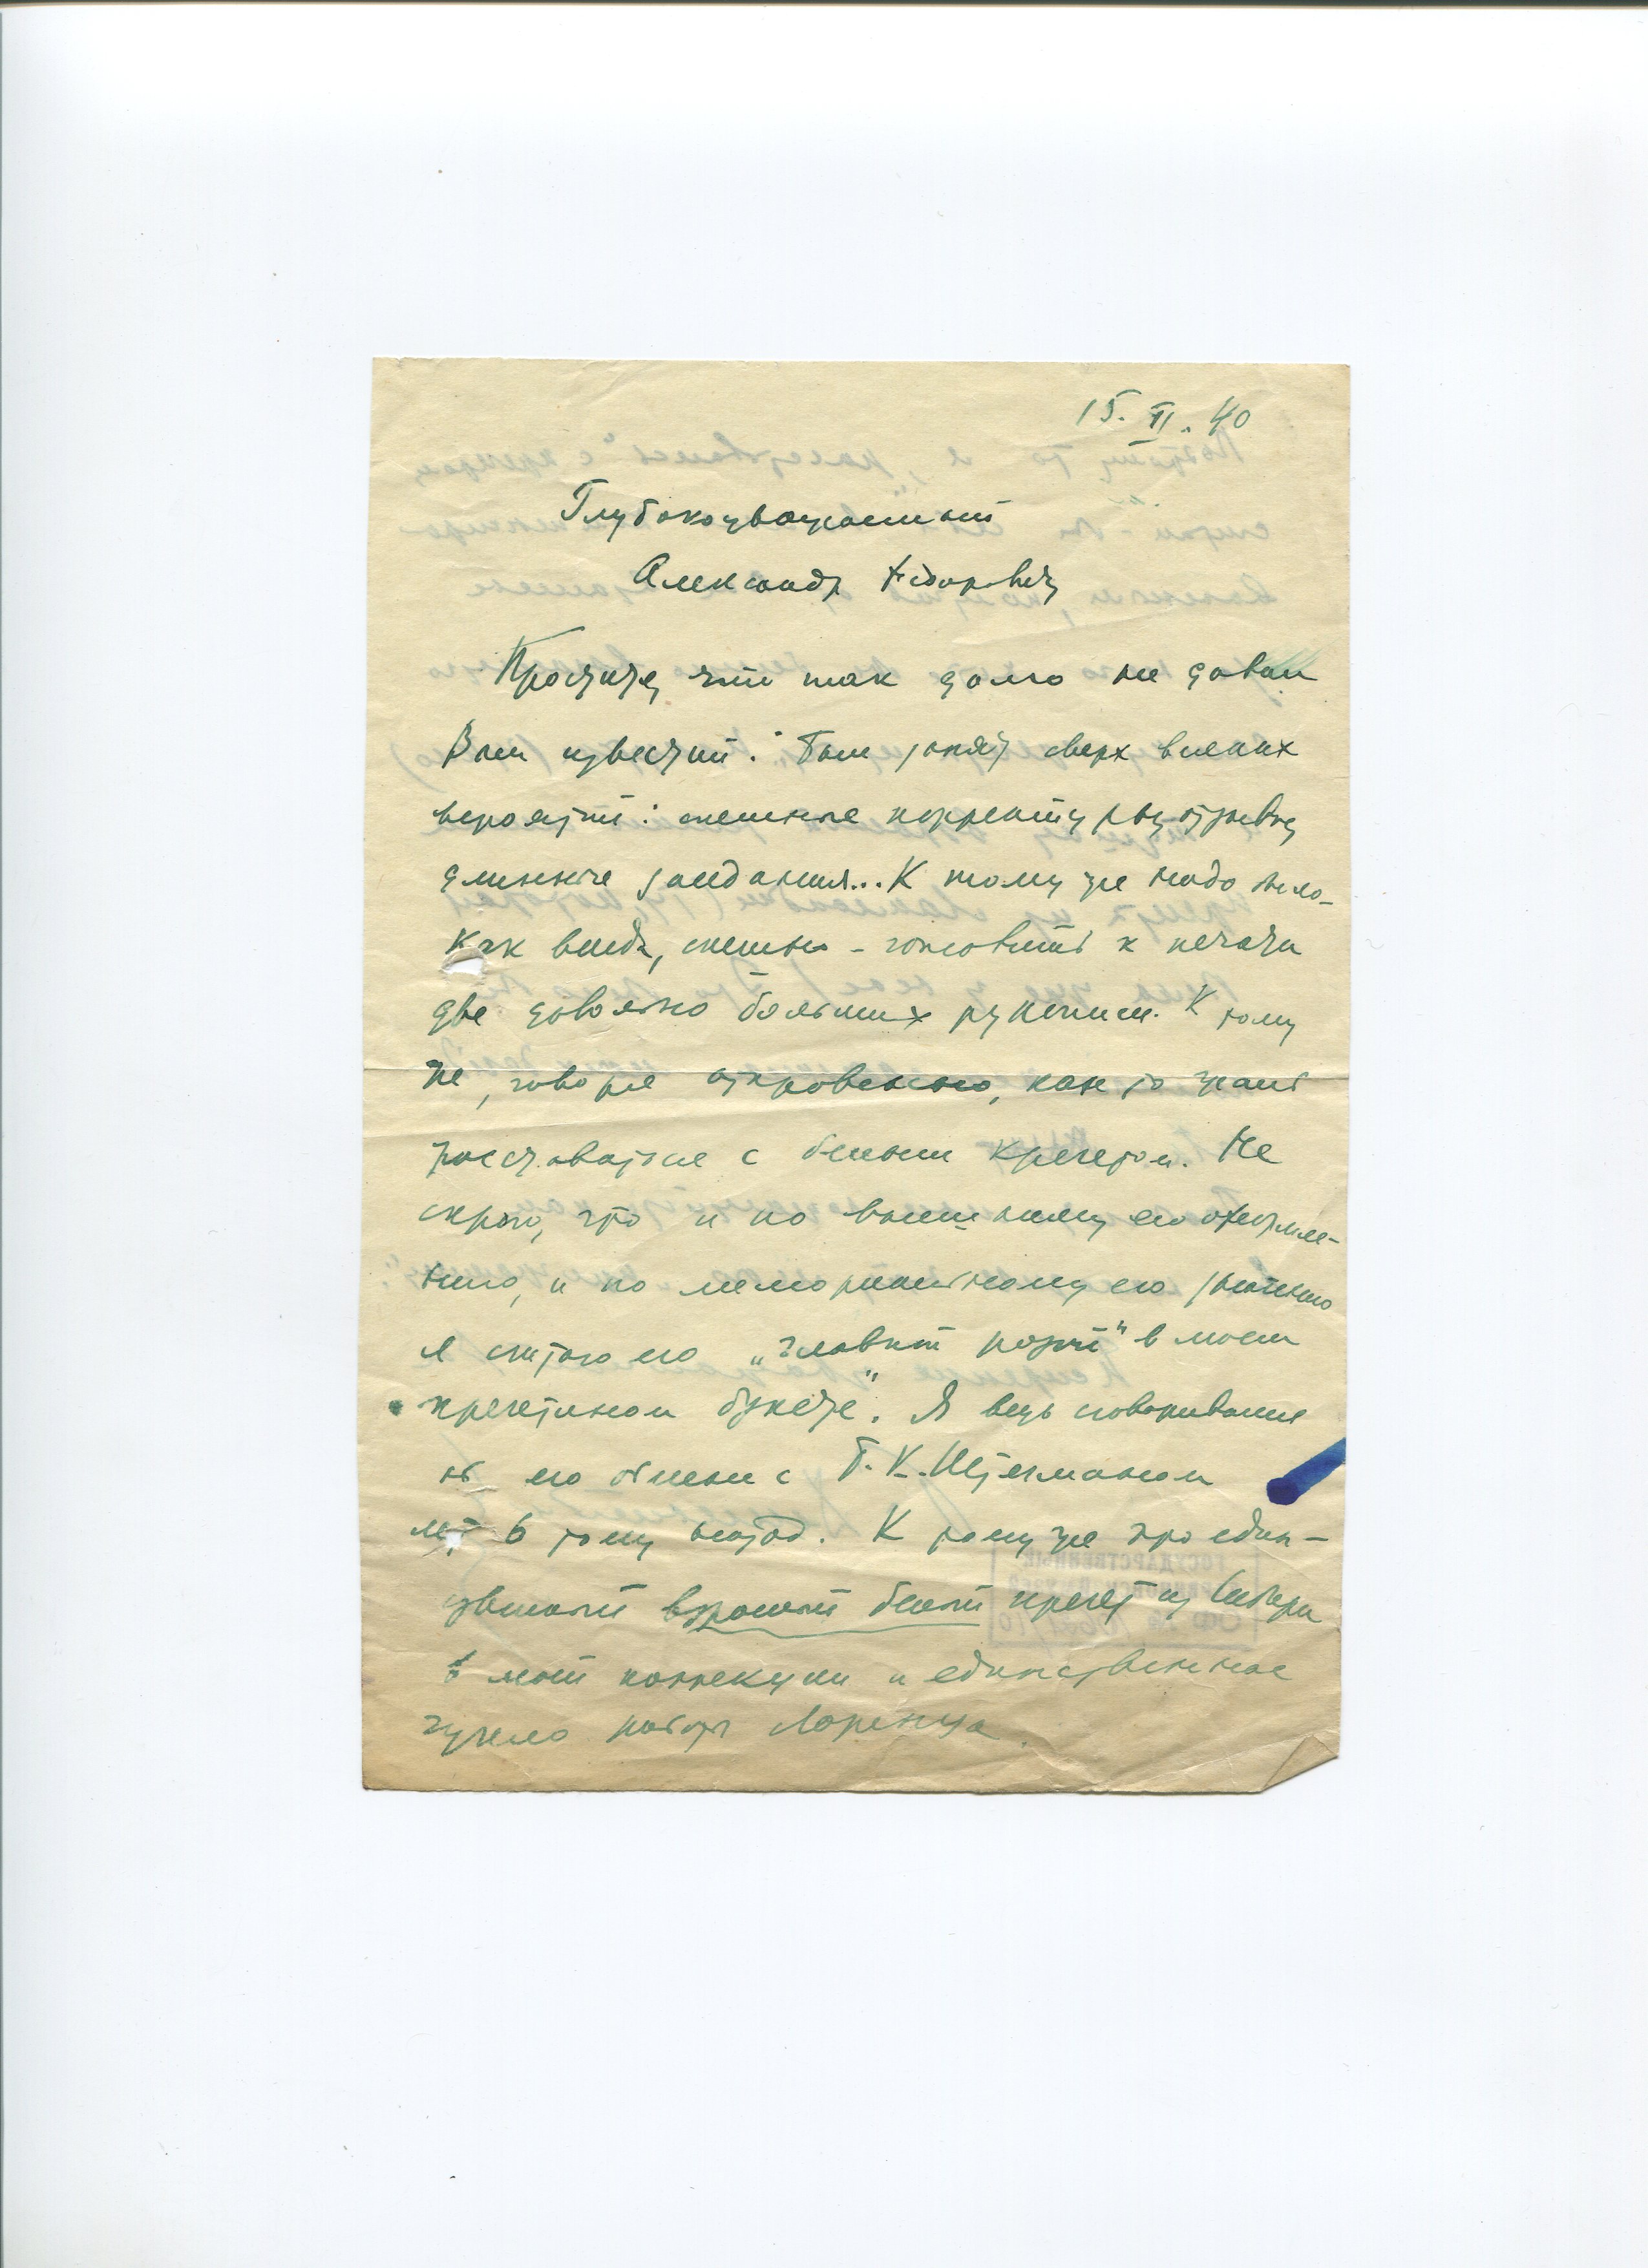 15. VI. 40
Глубокоуважаемый
Александр Федорович
Простите, что так долго не давал
Вам известий. Был занят сверх всяких
вероятий: спешные корректуры, отзывы,
длинные заседания... К тому же надо было –
как всегда, спешно – готовить к печати
две довольно больших рукописи. К тому
же, говоря откровенно, как то жаль
расставаться с белым кречетом. Не
скрою, что и по внешнему его оформле-
нию, и по мемориальному его значению
я считаю его „главной розой" в моем
„кречетином букете". Я ведь сговаривался
об его обмене с Б. К. Штегманом
лет 6 тому назад. К тому же это един-
ственный взрослый белый кречет из Сибири
в моей коллекции и единственное
чучело работы Лоренца.